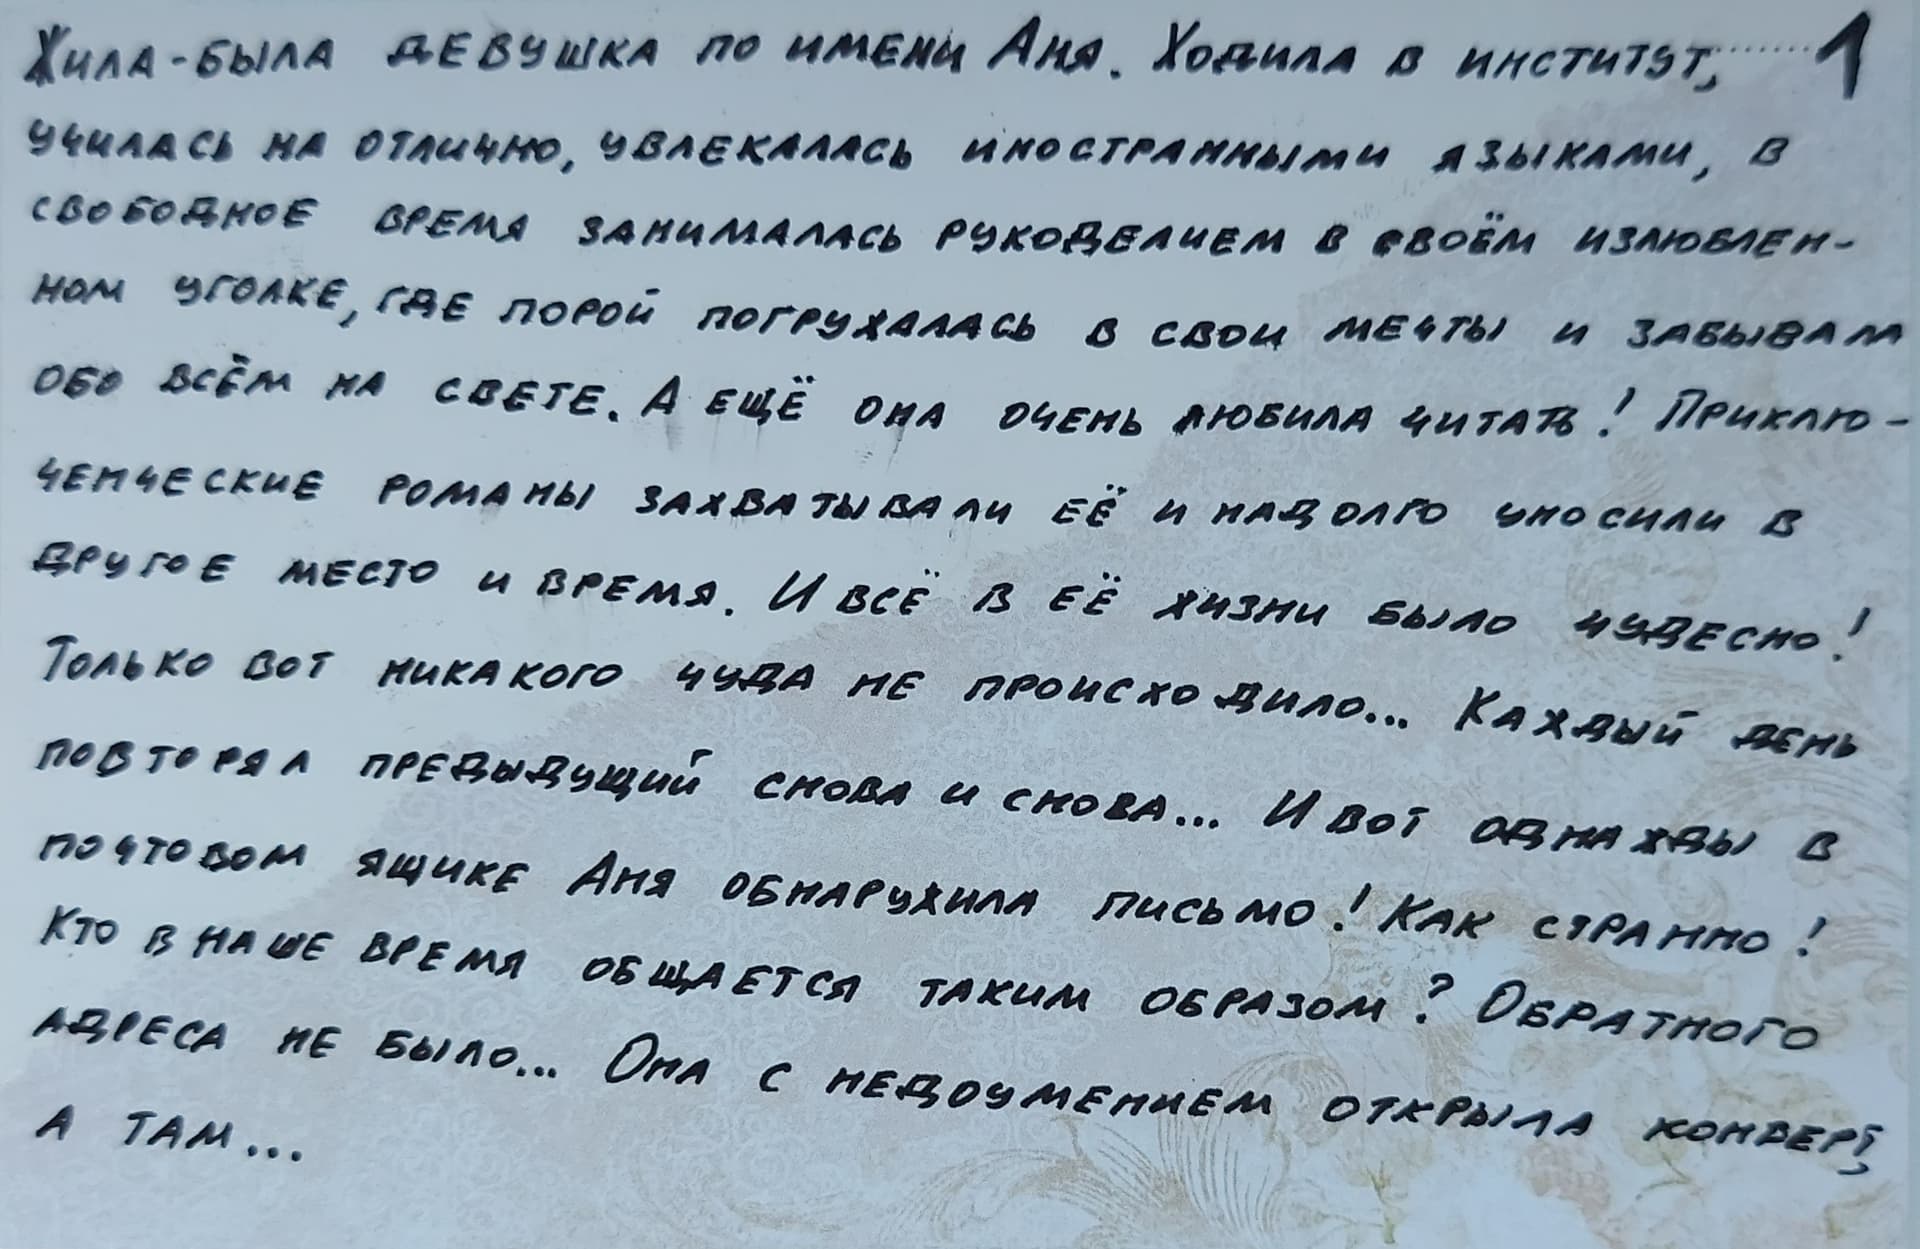 Жила-была девушка по имени Аня. Ходила в институт, 1
училась на отлично, увлекалась иностранными языками, в
свободное время занималась рукоделием в своём излюблен-
ном уголке, где порой погружалась в свои мечты и забывала
обо всём на свете. А ещё она очень любила читать! Приклю-
ченческие романы захватывали её и надолго уносили в
другое место и время. И всё в её жизни было чудесно!
Только вот никакого чуда не происходило... Каждый день
повторял предыдущий снова и снова... И вот однажды в
почтовом ящике Аня обнаружила письмо! Как странно!
Кто в наше время общается таким образом? Обратного
адреса не было... Она с недоумением открыла конверт,
а там...